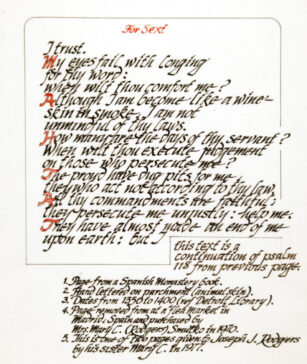 For Sext
I trust.
My eyes fail with longing
for thy word:
when wilt thou comfort me?
Although I am become like a wine-
skin in smoke, I am not
unmindful of thy laws.
How many are the days of thy servant?
When wilt thou execute judgement
on those who persecute me?
The proud have dug pits for me
they who act not according to thy law.
All thy commandments are faithful:
they persecute me unjustly: help me.
They have almost made an end of me
upon earth: but
this text is a
continuation of psalm
118 from previous page.
1. Page from a Spanish Monastery book.
2. Hand lettered on parchment (animal skin).
3. Dates from 1350 to 1400 (ref Detroit Library).
4. Page removed from at a Flea Market in
Madrid, Spain and purchased by
Mrs. Mary C. (Rodgers) in 1970.
5. This is one of two pages given to Joseph J. Rodgers
by his sister Mary C. in 1977.